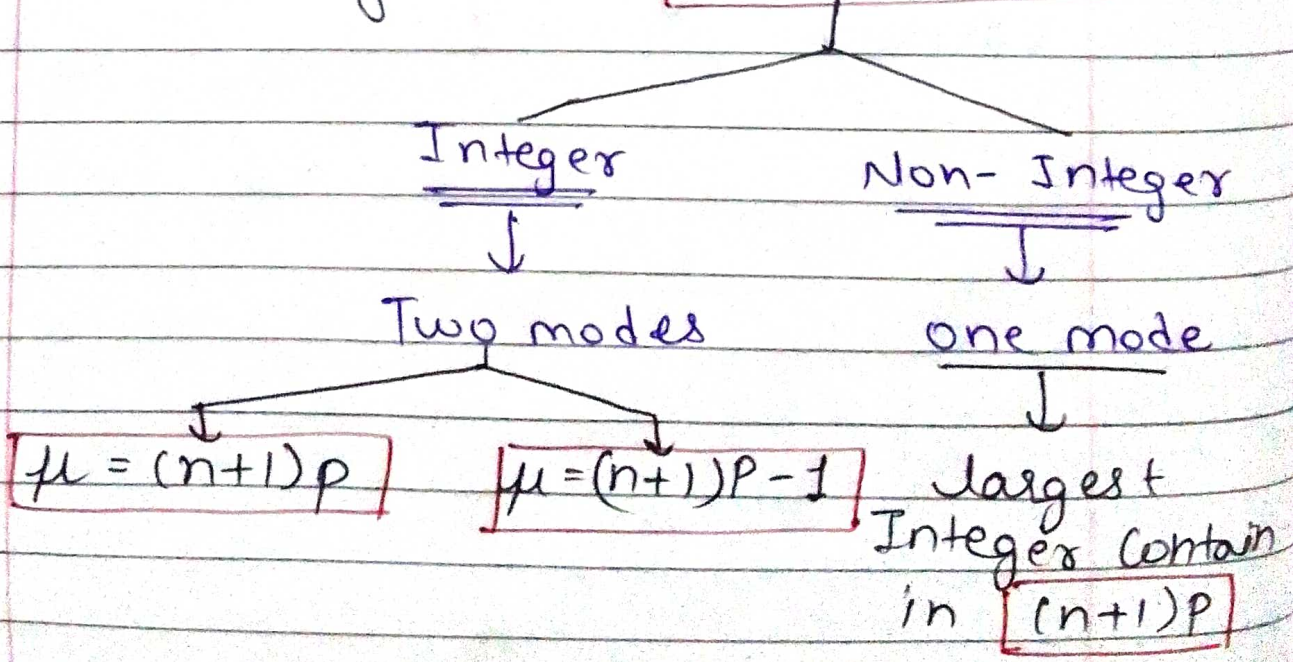 Integer
Non- Integer
Two modes
one mode
μ = (n+1)p
μ = (n+1)P - 1
largest
Integer Contain
in (n+1)P